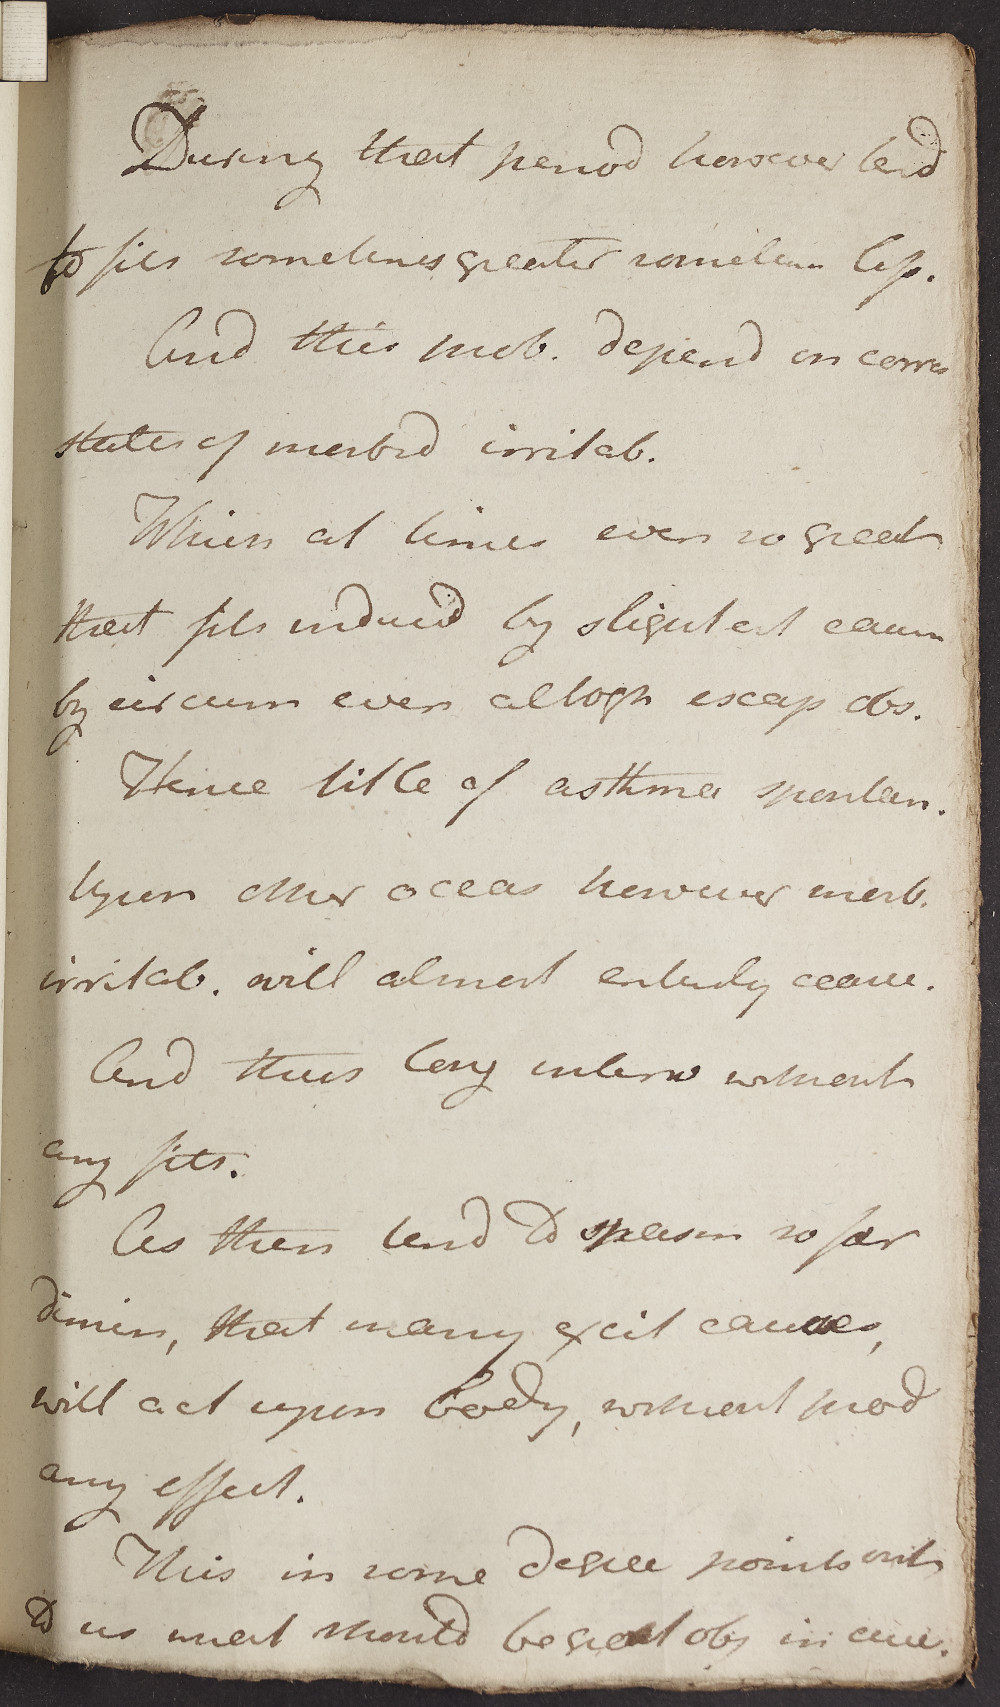 During that period however tend
to fits sometimes greater sometimes less.
And this prob. depend on corres
states of morbid irritab.
Which at times even so great
that fits induced by slightest causes
by circum even altogr escap obs.
Hence title of asthma spontan.
Upon other occas however morb.
irritab. will almost entirely cease.
And thus long interv without
any fits.
As then tend to spasm so far
dimin, that many excit causes,
will act upon body, without prod
any effect.
This in some degree points out
to us what should be great obj in cure.